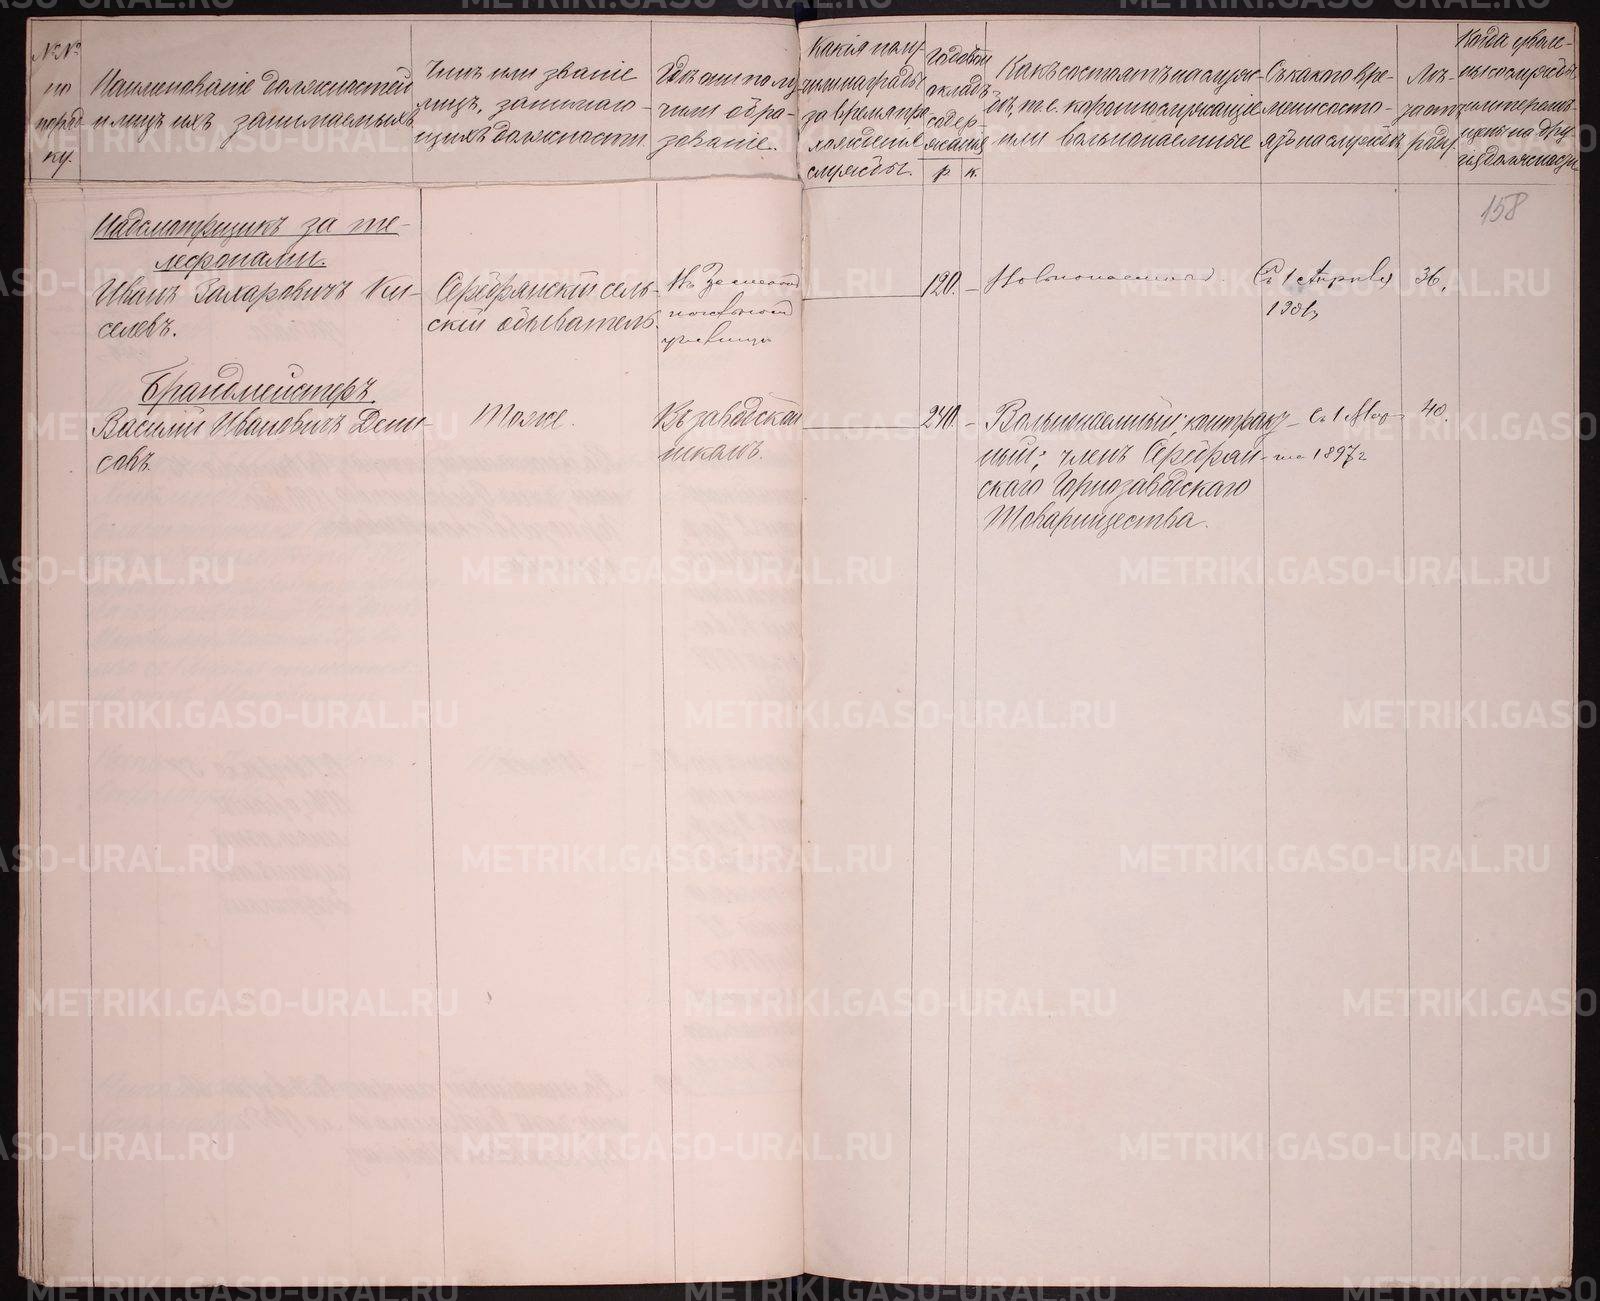 №№ по поряд ку.
Наименованіе должностей и лицъ ихъ занимаемыхъ
Чинъ или званіе лицъ, занимаю- щихъ должности.
Гдѣ они полу- чили обра- зованіе.
Какія полу- чили награды за время про хожденія службы.
Годовой окладъ содер жанія
р. к.
Какъ состоятъ на служ- бѣ, т.е. коронно служащіе или вольнонаемные
Съ какого вре- мени состо- ятъ на службѣ
Лѣ- та отъ роду.
Когда уволе- ны со службы или перемѣ- щены на дру- гія должности
158
Надсмотрщикъ за те-
лефонами.
Иванъ Захаровичъ Ки-
селевъ.
Серебрянскій сель-
скій обыватель.
Въ Земской
начальной
училищѣ
120. –
Вольнонаемный.
Съ 1 Апрѣля
1901г
36.
Брандмейстеръ.
Василій Ивановичъ Дени-
совъ.
Тоже.
Въ заводской
школѣ.
240. –
Вольнонаемный; контракт-
ный; членъ Серебрян-
скаго Горнозаводскаго
Товарищества.
Съ 1 Мар-
та 1897г
40.
METRIKI.GASO-URAL.RU